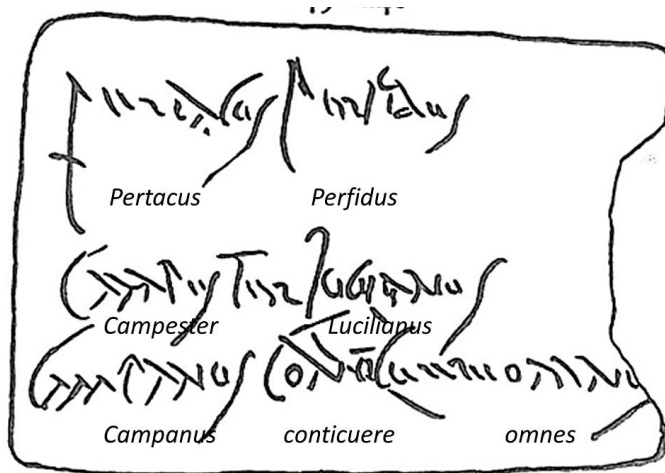 Pertacus Perfidus
Campester Lucilianus
Campanus conticuere omnes